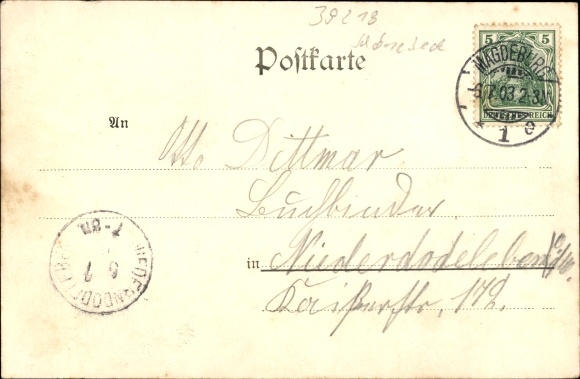 39218
Schönebeck
Postkarte
5 5
DEUTSCHES REICH
MAGDEBURG
6.7.03.2-3N
* 1 e
An
Otto Dittmar
Buchbinder
in Niederdodeleben
Kaiserstr. 172.
NIEDERNDODELEBEN
6 7
7-8N